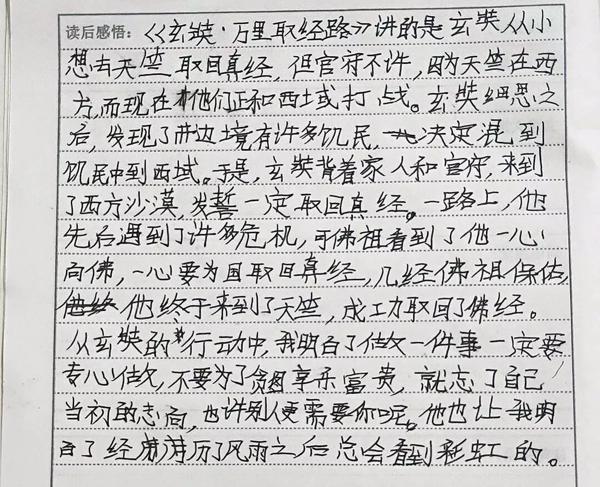 读后感悟：《玄奘·万里取经路》讲的是玄奘从小
想去天竺取回真经，但官府不许，因为天竺在西
方，而现在他们正和西域打战。玄奘细思之
后，发现了井边境有许多饥民，决定混到
饥民中到西域。于是，玄奘背着家人和官府，来到
了西方沙漠，发誓一定取回真经。一路上，他
先后遇到了许多危机，可佛祖看到了他一心
向佛，一心要为国取回真经，几经佛祖保佑，
他终于来到了天竺，成功取回了佛经。
从玄奘的行动中，我明白了做一件事一定要
专心做，不要为了贪图享乐富贵，就忘了自己
当初的志向，也许别人更需要你呢。他也让我明
白了经历了风雨之后总会看到彩虹的。